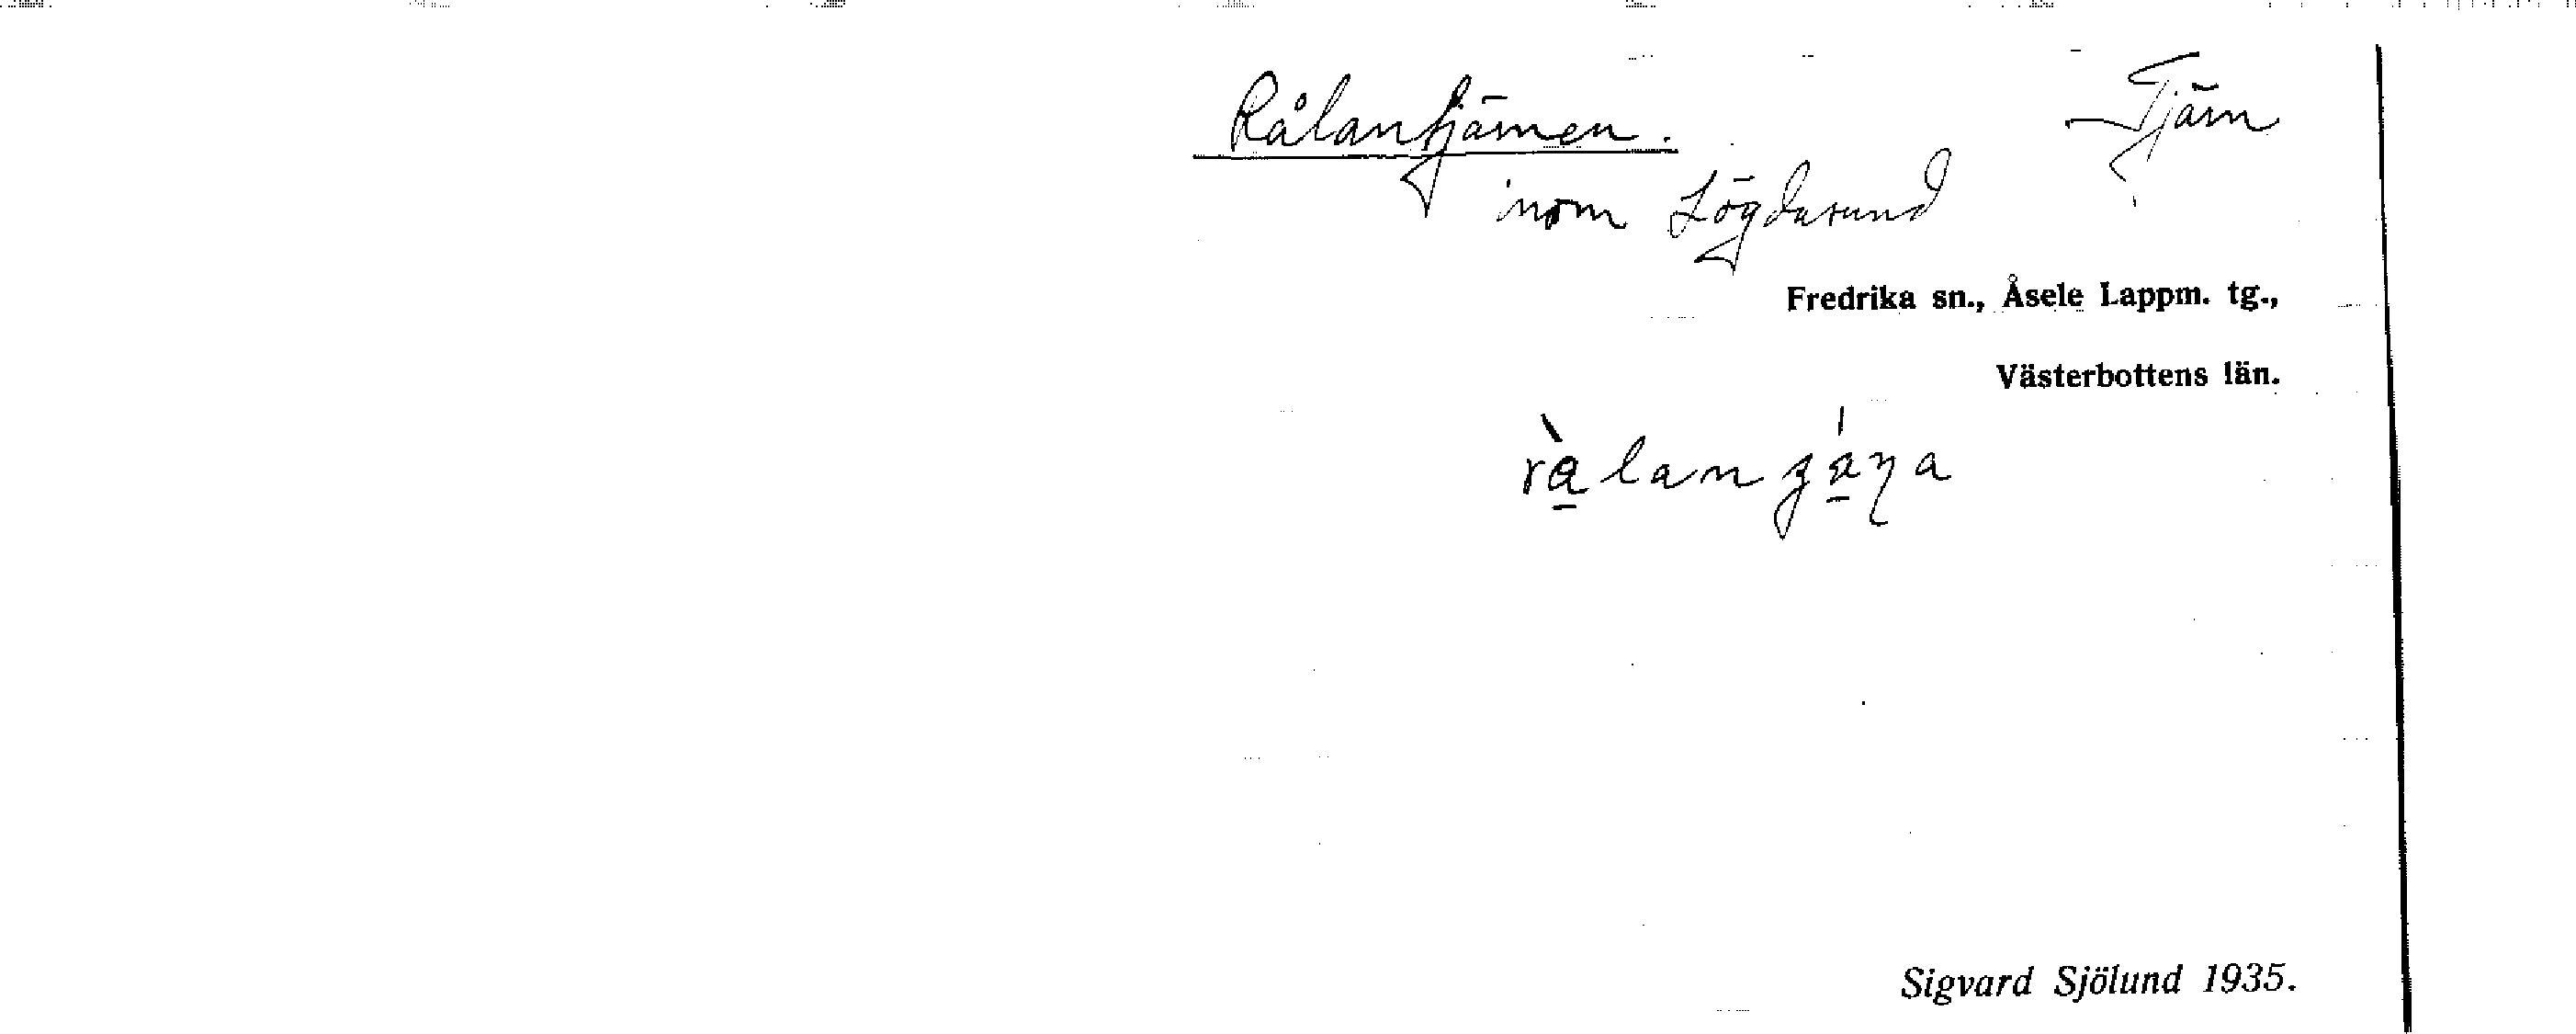 Rålantjärnen.
Tjärn
inom Lögdasund
Fredrika sn., Åsele Lappm. tg.,
Västerbottens län.
Sigvard Sjölund 1935.